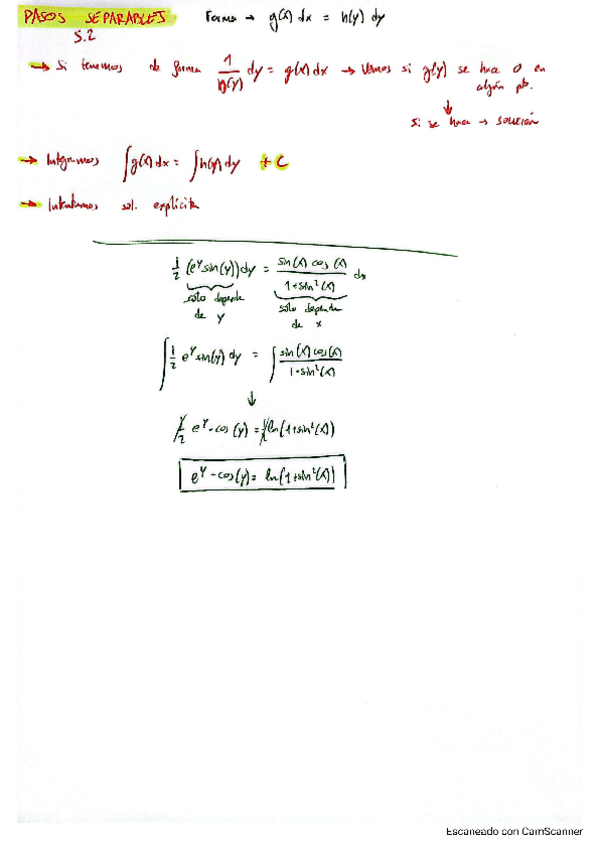 PASOS SEPARABLES Forma → g(x) dx = h(y) dy
S.2
→ Si tenemos de forma 1/h(y) dy = g(x) dx → Vemos si g(y) se hace 0 en algún pto.
↓
Si se hace → solución
→ Integramos ∫g(x) dx = ∫h(y) dy + C
→ Intentamos sol. explícita
1/2 (e^y sin(y)) dy = sin(x) cos(x) / 1+sin²(x) dx
sólo depende de y sólo depende de x
∫ 1/2 e^y sin(y) dy = ∫ sin(x) cos(x) / 1+sin²(x)
↓
1/2 e^y - cos(y) = 1/2 ln(1+sin²(x))
e^y - cos(y) = ln(1+sin²(x))
Escaneado con CamScanner